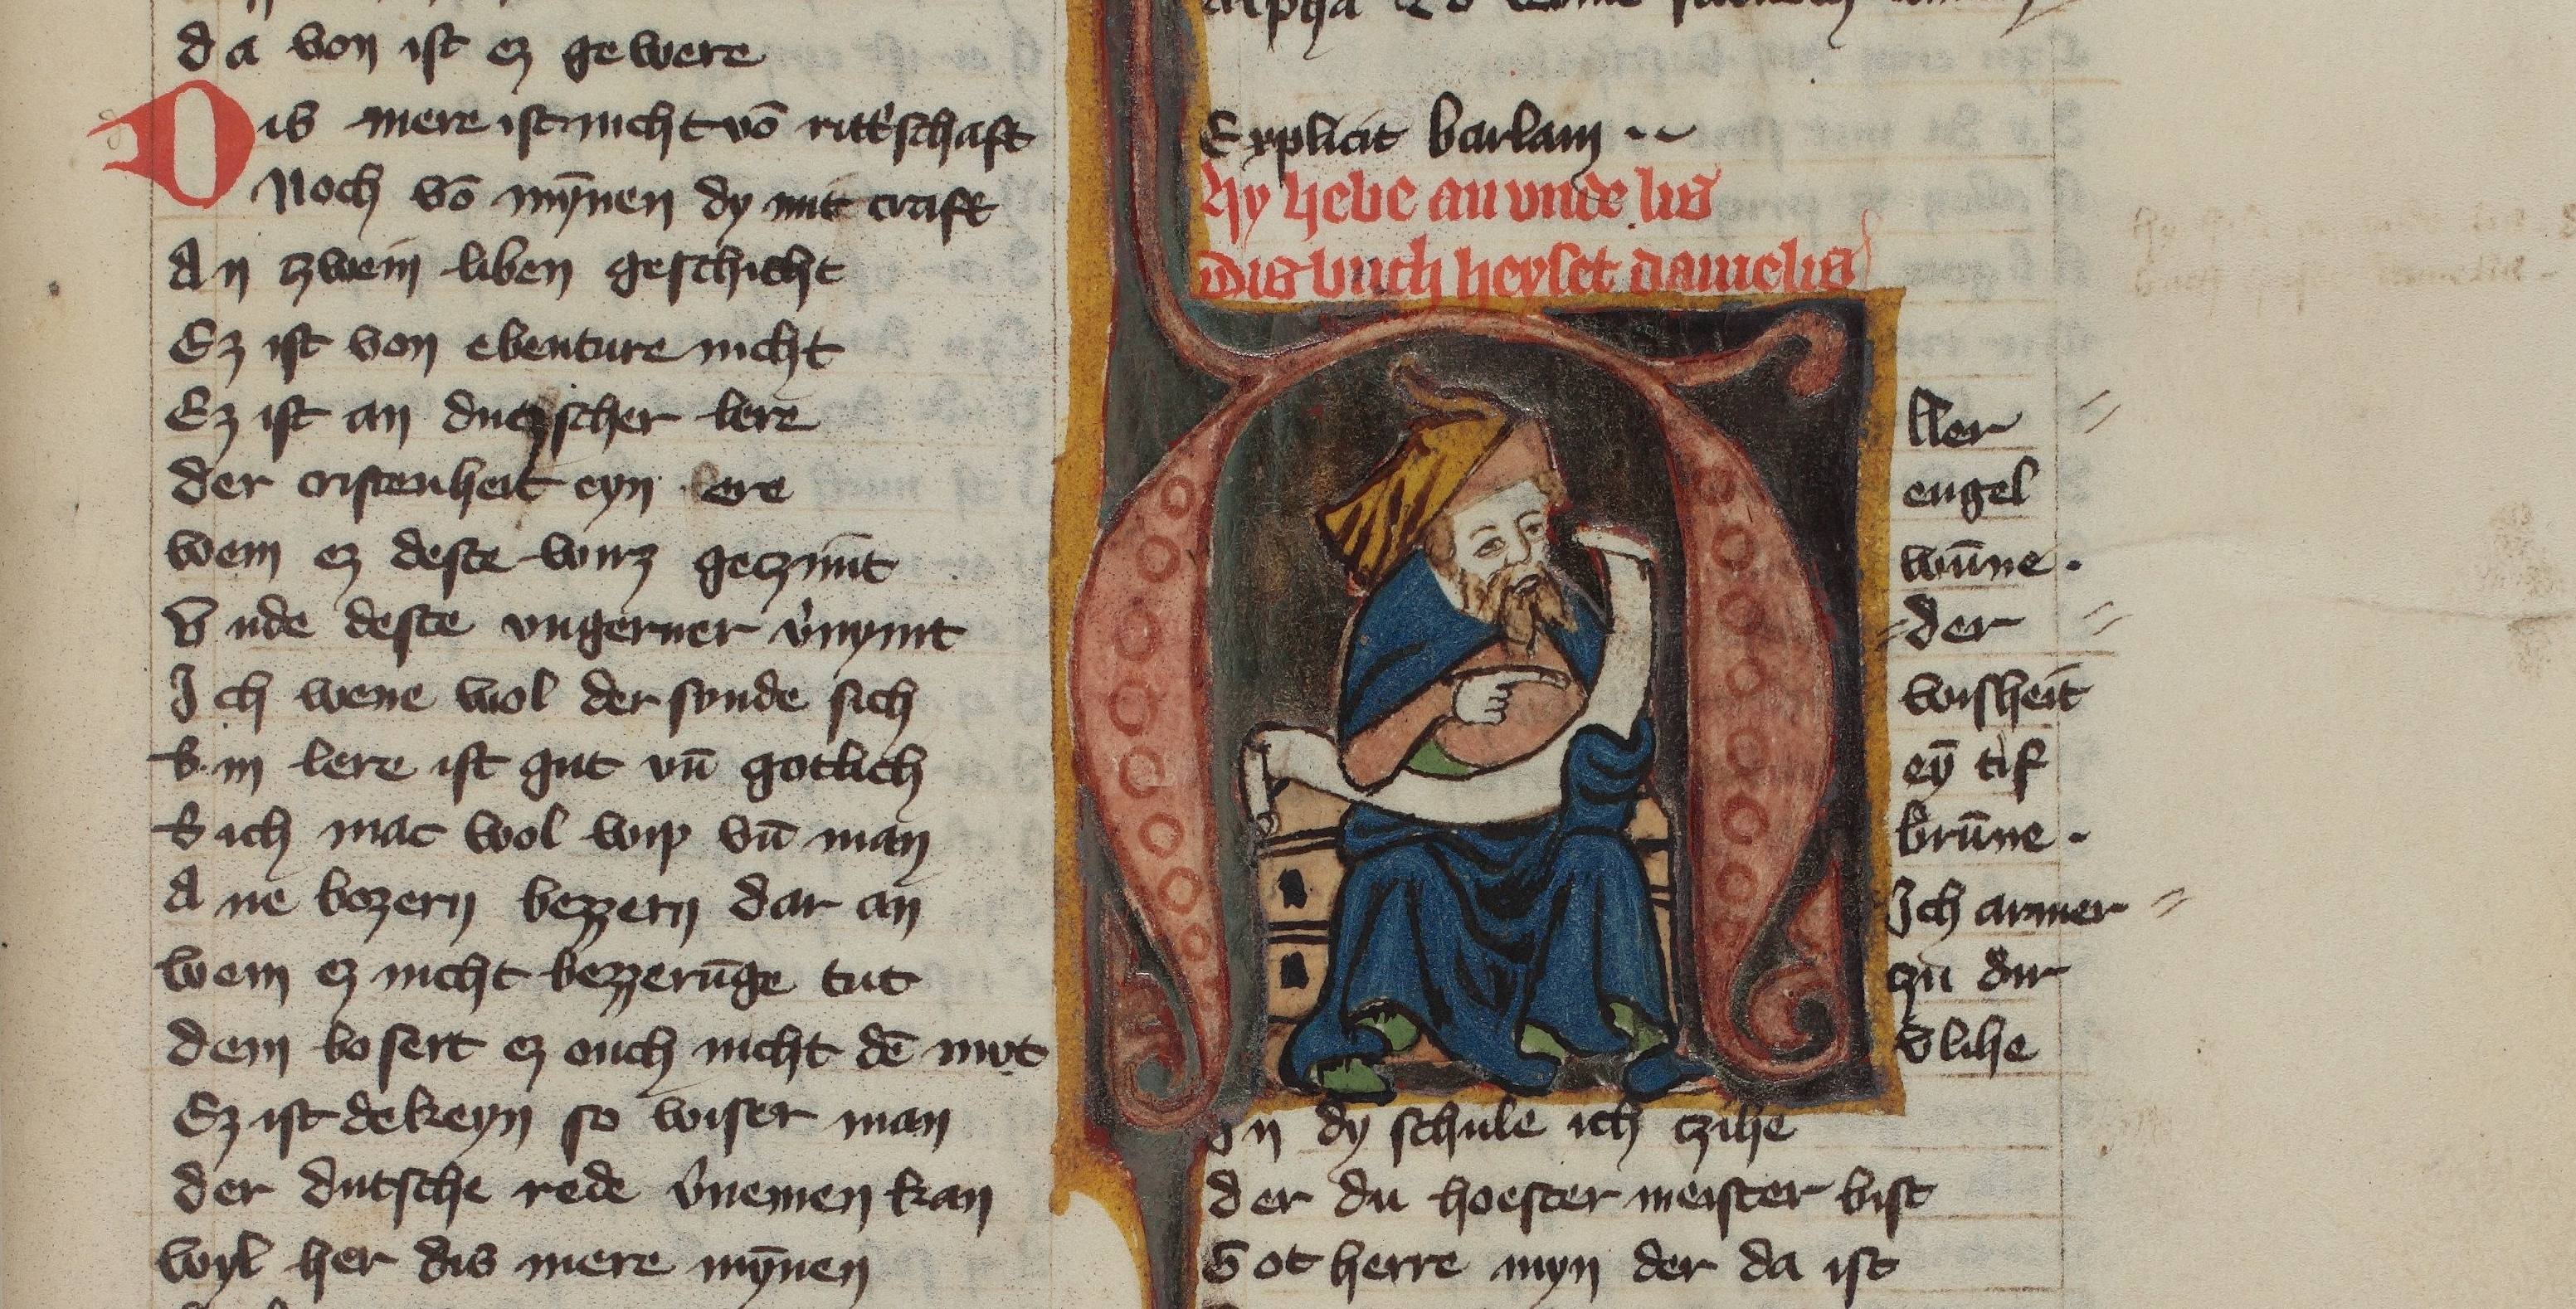 da von ist ez gewere
Dis mere ist nicht vō ritt'schaft
Noch vō mȳnen dy mit craft
An zwein liben geschicht
Ez ist von ebenture nicht
Ez ist an dutzscher lere
der cristenheit eyn ere
wem ez deste wirz geczimt
Vnde deste vngerner v'nymt
Ich wene wol der sunde sich
Sin lere ist gut vn̄ gotlich
Sich mac wol wip vn̄ man
Ane bozern bezzern dar an
wem ez nicht bezzerūge tut
dem bosert ez ouch nicht dē mut
Ez ist dekeyn so wiser man
der dutsche rede v'nemen kan
wyl her dis mere mȳnen
Explicit barlam
Hy hebe an vnde lis
Dis buch heyset danielis
Aller
engel
wūne.
der
wisheit
eȳ tif
brūne.
Ich armer
zu dir
v'lihe
In dy schule ich czihe
der du hoester meister bist
Got herre myn der da ist